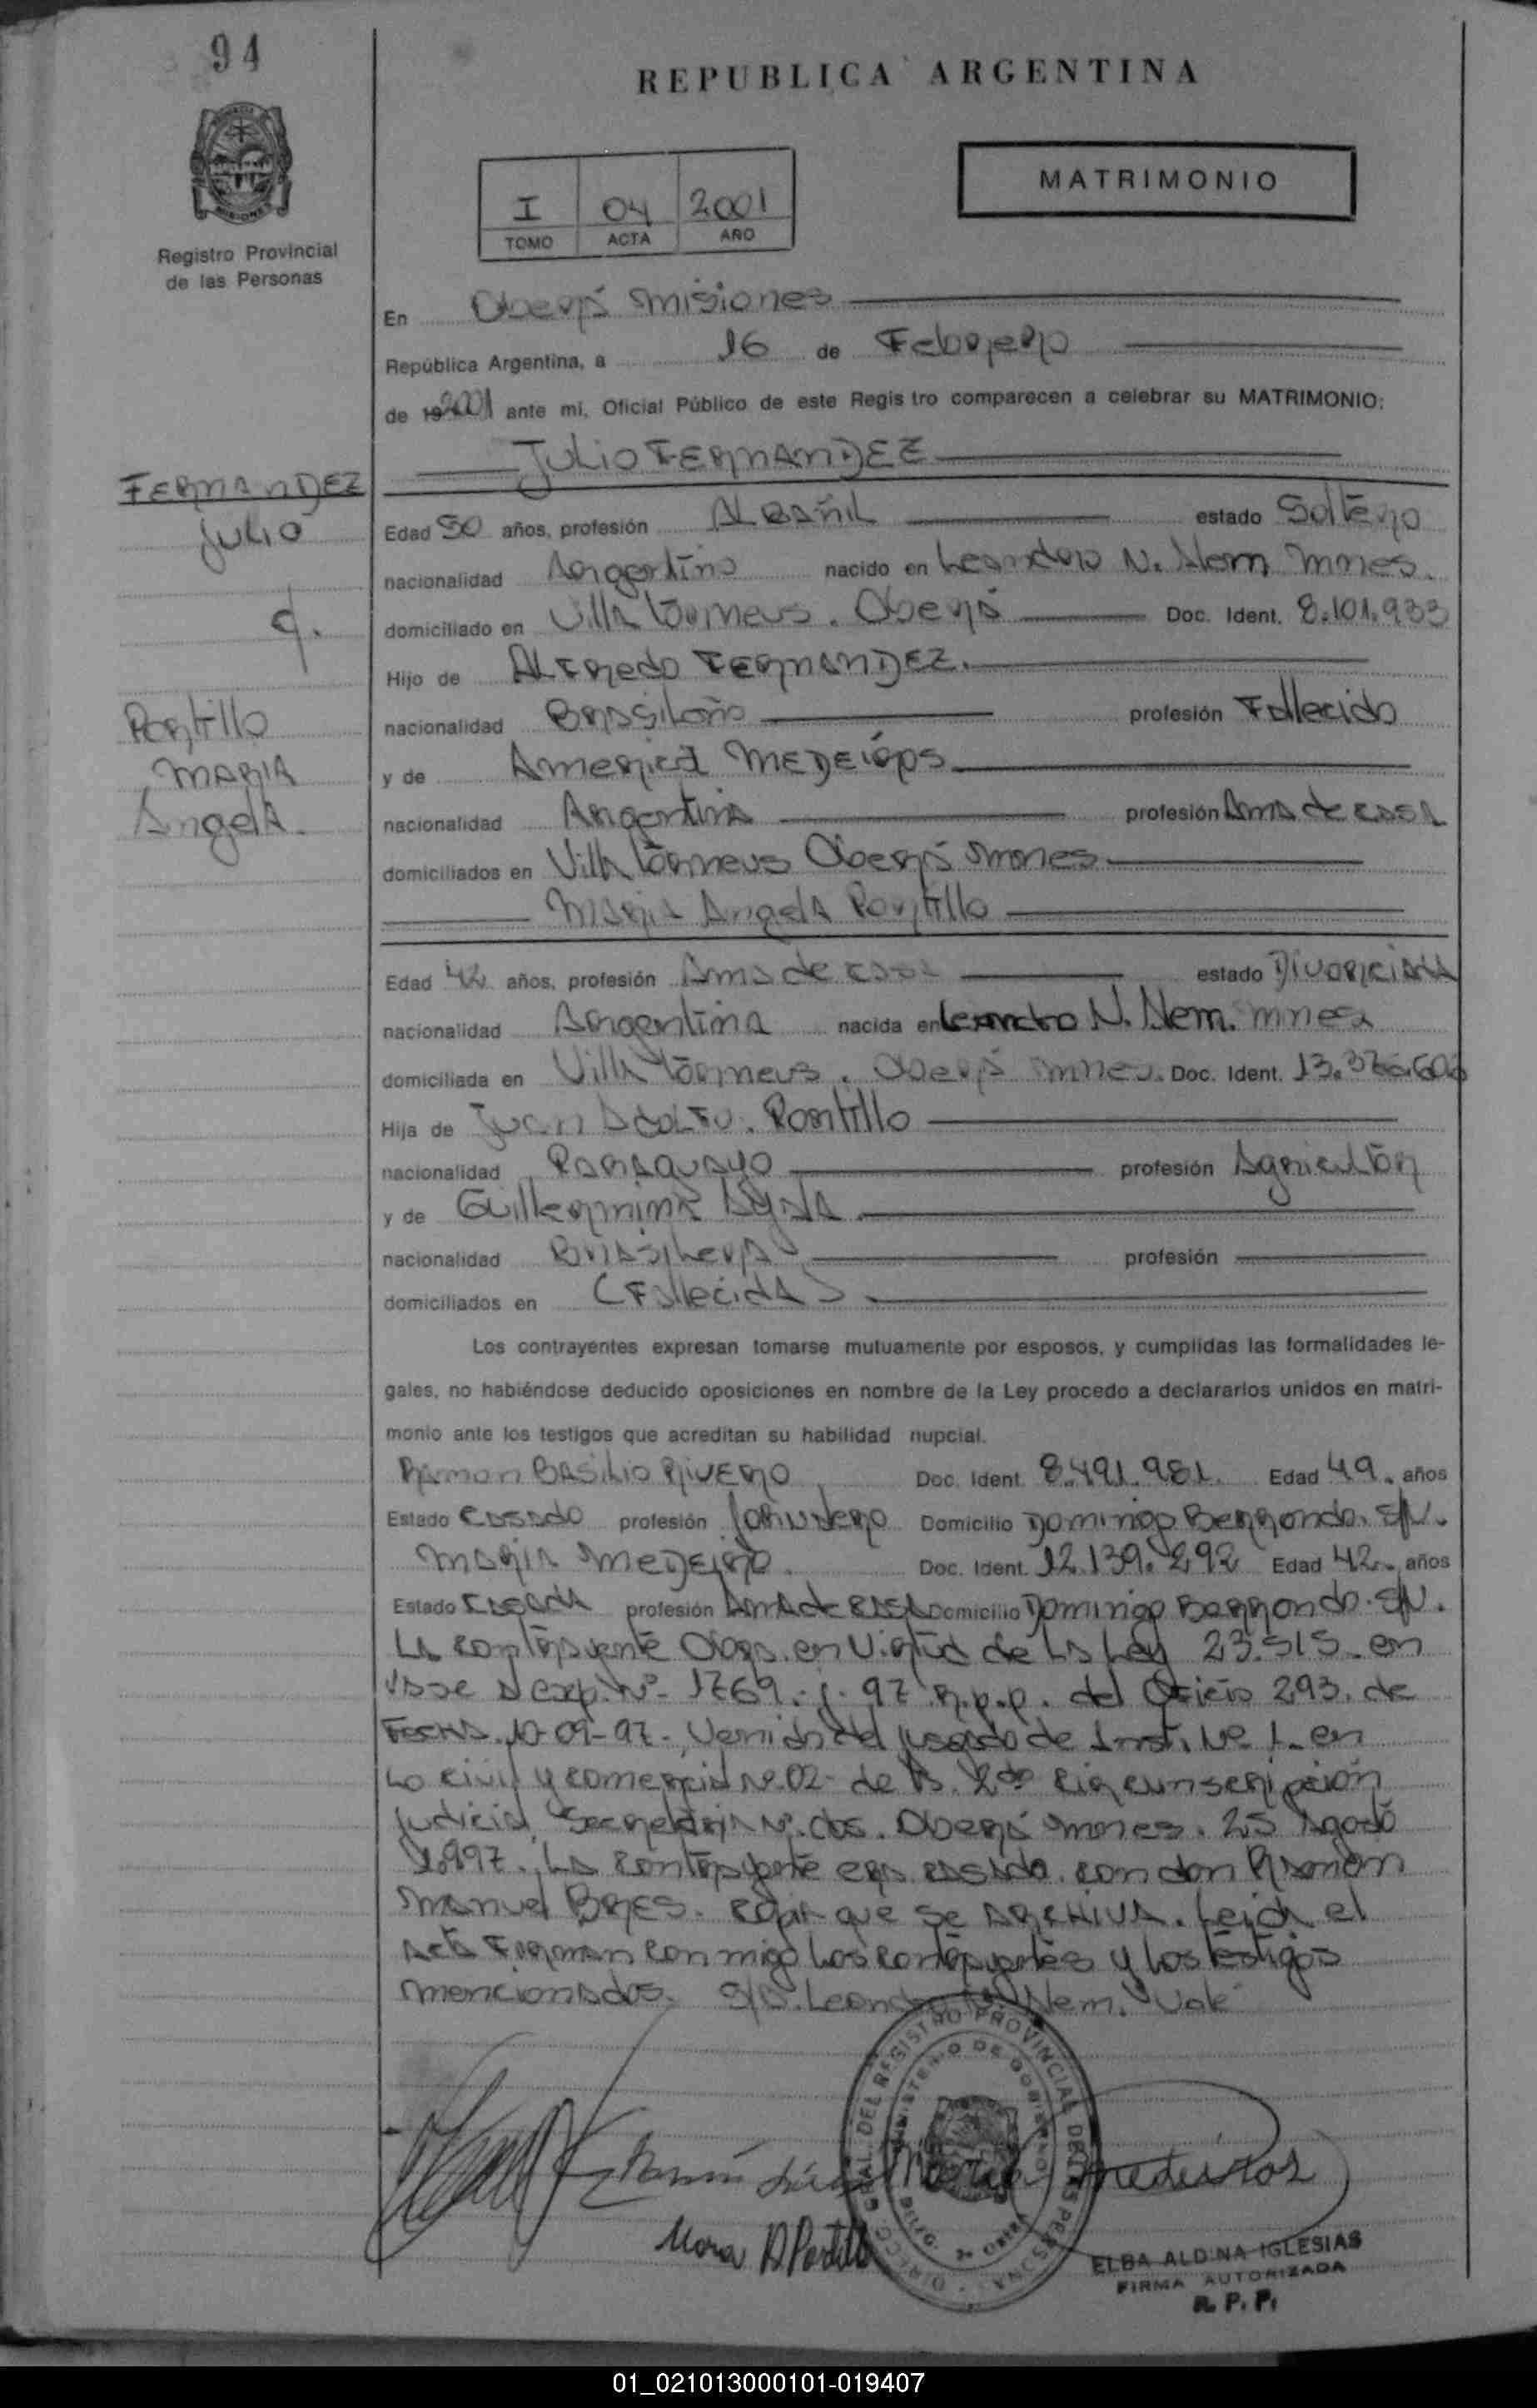 94
REPUBLICA ARGENTINA
MATRIMONIO
I 04 2001
TOMO ACTA AÑO
Registro Provincial
de las Personas
En Oberá Misiones
República Argentina, a 16 de Febrero
de 19 2001 ante mi, Oficial Público de este Registro comparecen a celebrar su MATRIMONIO:
Julio FERNANDEZ
FERNANDEZ
Julio
c.
Portillo
MARIA
Angela.
Edad 50 años, profesión ALBAÑIL estado Soltero
nacionalidad Argentino nacido en Leandro N. Alem Mnes.
domiciliado en Villa Torneus. Oberá Doc. Ident. 8.101.933
Hijo de ALFredo FERNANDEZ.
nacionalidad Brasileño profesión Fallecido
y de America MEDEiros
nacionalidad Argentina profesión Ama de casa
domiciliados en Villa Torneus Oberá Mnes
Maria Angela Portillo
Edad 42 años, profesión Ama de casa estado Divorciada
nacionalidad Argentina nacida en Leandro N. Alem. Mnes
domiciliada en Villa Torneus. Oberá Mnes. Doc. Ident.
Hija de Juan ADOLFO. Portillo
nacionalidad Paraguayo profesión Agricultor
y de Guillermina Ayala
nacionalidad Brasilera profesión
domiciliados en (Fallecida)
Los contrayentes expresan tomarse mutuamente por esposos, y cumplidas las formalidades le-
gales, no habiéndose deducido oposiciones en nombre de la Ley procedo a declararlos unidos en matri-
monio ante los testigos que acreditan su habilidad nupcial.
Ramon BASiLio RiVERO Doc. Ident. 8.491.981. Edad 49. años
Estado Casado profesión Jornalero Domicilio Domingo Berrondo. S/N.
MARIA MEDEiro. Doc. Ident. 12.139.292 Edad 42. años
Estado Casada profesión AMA de CASA Domicilio Domingo Berrondo. S/N.
La contrayente Obra. en Virtud de La Ley 23.515. en
base A exp. Nº 1769. 97 R.p.p. del Oficio 293. de
Fecha. 10-09-97-, Venido del Jusgado de Inst. Nº 1. en
Lo civil y comercial Nº.02- de la 2da circunscripción
Judicial, Secretaria Nº. dos. Oberá Mnes. 25 Agosto
1.997. La contrayente era casada con don Ramon
Manuel copia que se ARCHIVA. Leida el
Acta Firman con migo Los contrayentes y los testigos
mencionados. S/B. Leandro N. Alem. Vale
DIRECC. GRAL. DEL REGISTRO PROVINCIAL DE LAS PERSONAS
MINISTERIO DE GOBIERNO
Ramón
Maria Medeiros
Maria A Portillo
ELBA ALDINA IGLESIAS
FIRMA AUTORIZADA
R. P. P.
01_021013000101-019407